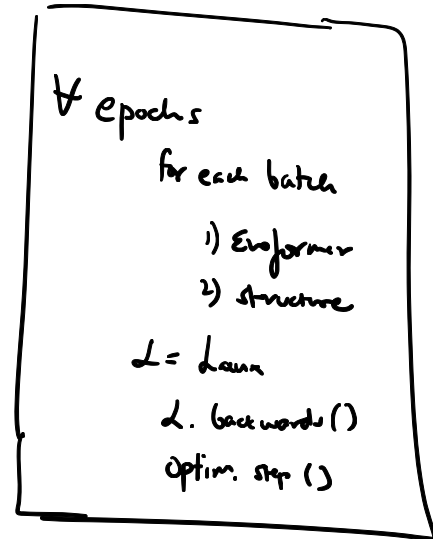 ∀ epochs
for each batch
1) Evoformer
2) structure
L = Laux
L. backwards()
optim. step ()